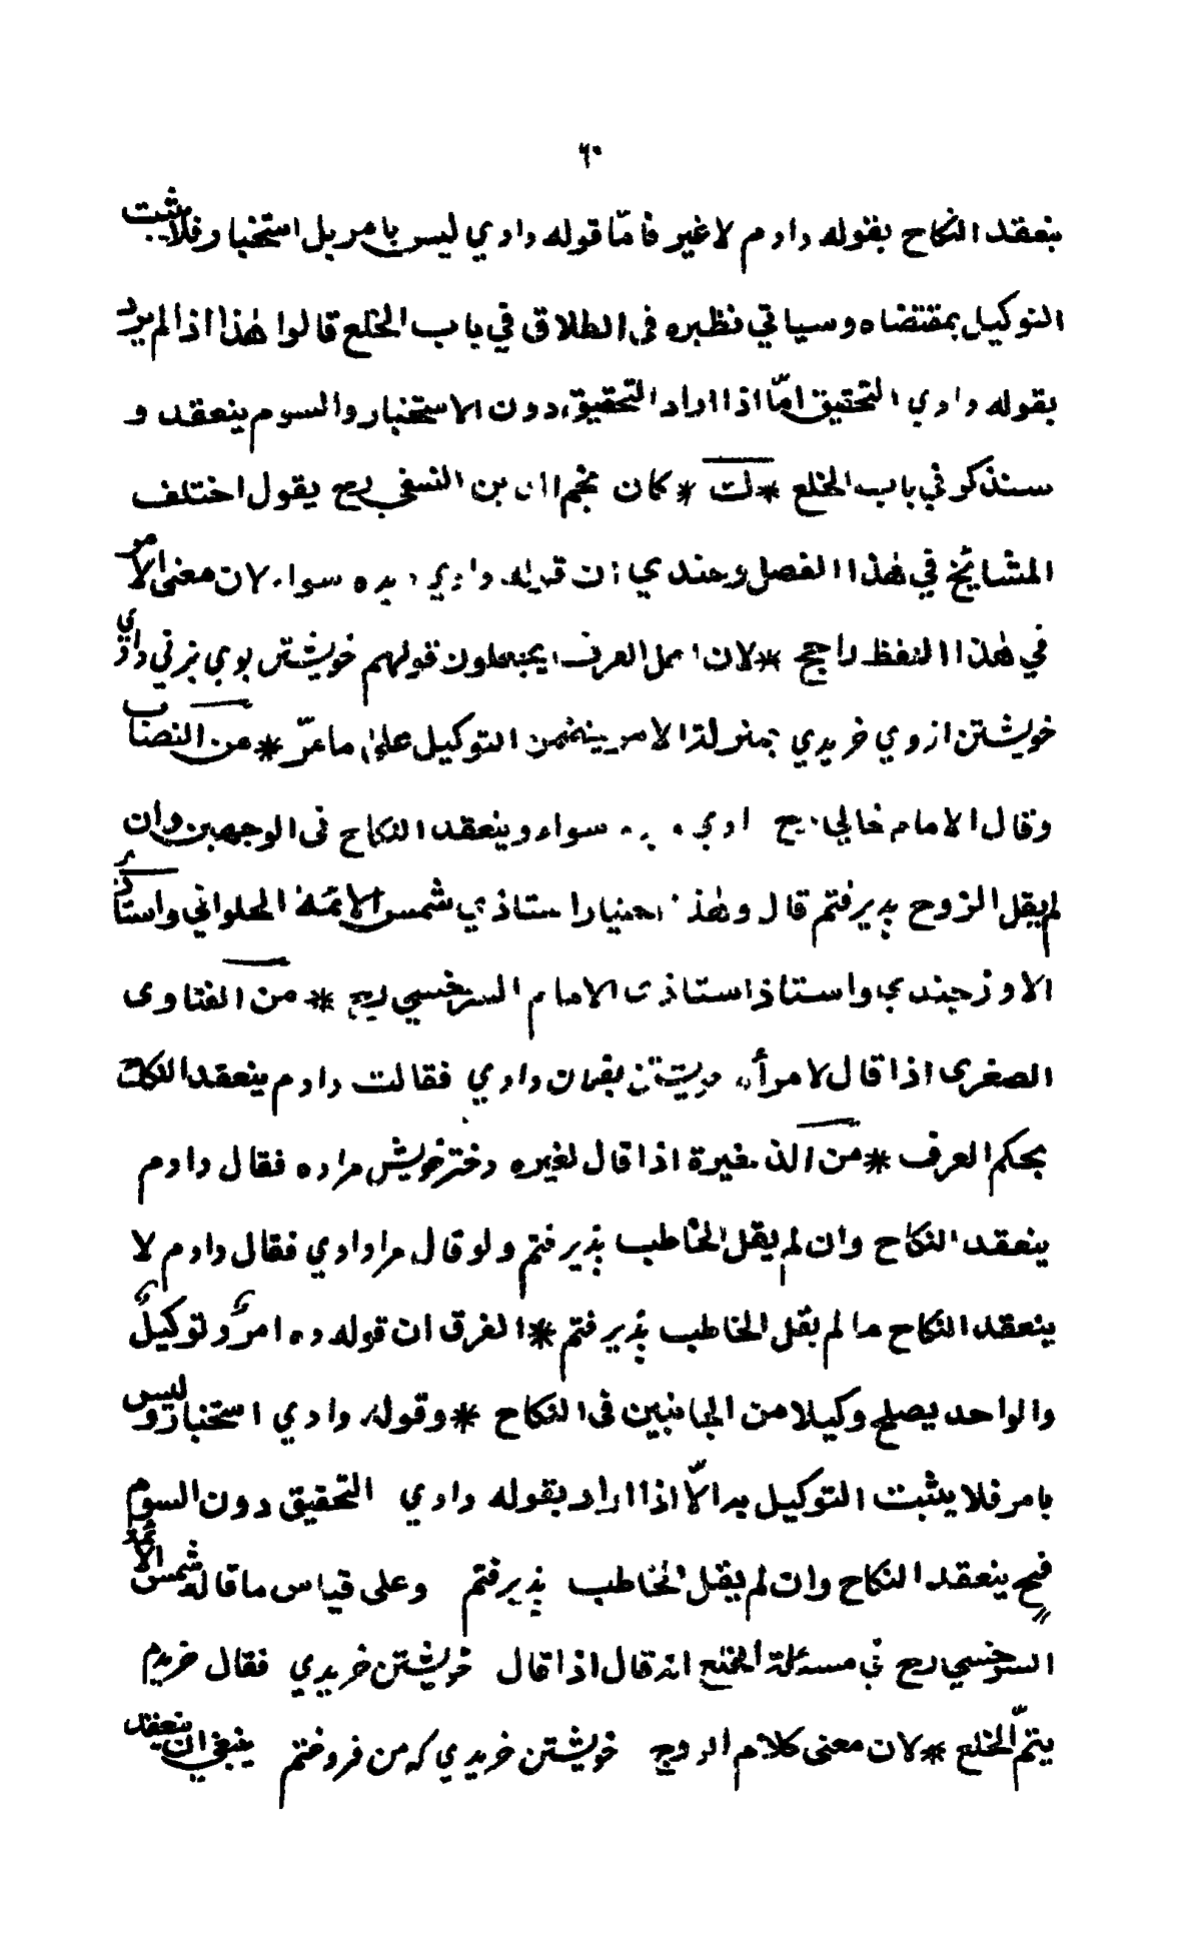 ٦٠
ينعقد النكاح بقوله دادم لا غير فامّا قوله دادي ليس بامر بل استخبار فلا يثبت
التوكيل بمقتضاه وسياتي نظيره في الطلاق في باب الخلع قالوا هٰذا اذا لم يرد
بقوله دادي التحقيق امّا اذا اراد التحقيق دون الاستخبار والسوم ينعقد و
سنذكر في باب الخلع * لت * كان نجم الدين النسفي رح يقول اختلف
المشائخ في هٰذا الفصل وعندي ان قوله دادي بده سواء لان معنى الامر
في هٰذا اللفظ راجح * لان اهل العرف يجعلون قولهم خويشتن بوي بزني دادي
خويشتن ازوي خريدي بمنزلة الامر يتضمن التوكيل علىٰ ما مرّ * من النصاب
وقال الامام خالي رح دادي سواء وينعقد النكاح في الوجهين وان
لم يقل الزوج پذيرفتم قال وهٰذا اختيار استاذي شمس الائمة الحلواني واستاذ
الاوزجندي واستاذ استاذي الامام السرخسي رح * من الفتاوى
الصغرى اذا قال لامرأة خويشتن بفلان دادي فقالت دادم ينعقد النكاح
بحكم العرف * من الذخيرة اذا قال لغيره دختر خويش مراده فقال دادم
ينعقد النكاح وان لم يقل الخاطب پذيرفتم ولو قال مرا دادي فقال دادم لا
ينعقد النكاح ما لم يقل الخاطب پذيرفتم * الفرق ان قوله ده امرٌ وتوكيلٌ
والواحد يصلح وكيلا من الجانبين في النكاح * وقوله دادي استخبار وليس
بامر فلا يثبت التوكيل به الّا اذا اراد بقوله دادي التحقيق دون السوم
فح ينعقد النكاح وان لم يقل الخاطب پذيرفتم وعلى قياس ما قاله شمس الائمة
السرخسي رح في مسئلة الخلع انه قال اذا قال خويشتن خريدي فقال خريدم
يتمّ الخلع * لان معنى كلام الزوج خويشتن خريدي كه من فروختم ينبغي ان ينعقد